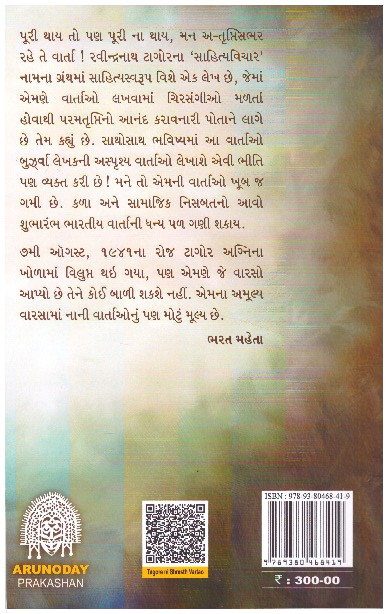 પૂરી થાય તો પણ પૂરી ના થાય, મન અ-તૃપ્તિસભર
રહે તે વાર્તા ! રવીન્દ્રનાથ ટાગોરના ‘સાહિત્યવિચાર’
નામના ગ્રંથમાં સાહિત્યસ્વરૂપ વિશે એક લેખ છે, જેમાં
એમણે વાર્તાઓ લખવામાં ચિરસંગીઓ મળતાં
હોવાથી પરમતૃપ્તિનો આનંદ કરાવનારી પોતાને લાગે
છે તેમ કહ્યું છે. સાથોસાથ ભવિષ્યમાં આ વાર્તાઓ
બુર્ઝ્વા લેખકની અસ્પૃશ્ય વાર્તાઓ લેખાશે એવી ભીતિ
પણ વ્યક્ત કરી છે ! મને તો એમની વાર્તાઓ ખૂબ જ
ગમી છે. કળા અને સામાજિક નિસબતનો આવો
શુભારંભ ભારતીય વાર્તાની ધન્ય પળ ગણી શકાય.
૭મી ઑગસ્ટ, ૧૯૪૧ના રોજ ટાગોર અગ્નિના
ખોળામાં વિલુપ્ત થઇ ગયા, પણ એમણે જે વારસો
આપ્યો છે તેને કોઈ બાળી શકશે નહીં. એમના અમૂલ્ય
વારસામાં નાની વાર્તાઓનું પણ મોટું મૂલ્ય છે.
ભરત મહેતા
ISBN : 978-93-80468-41-9
9789380468419
₹ : 300-00
ARUNODAY
PRAKASHAN
Tagore ni Shresth Vartao